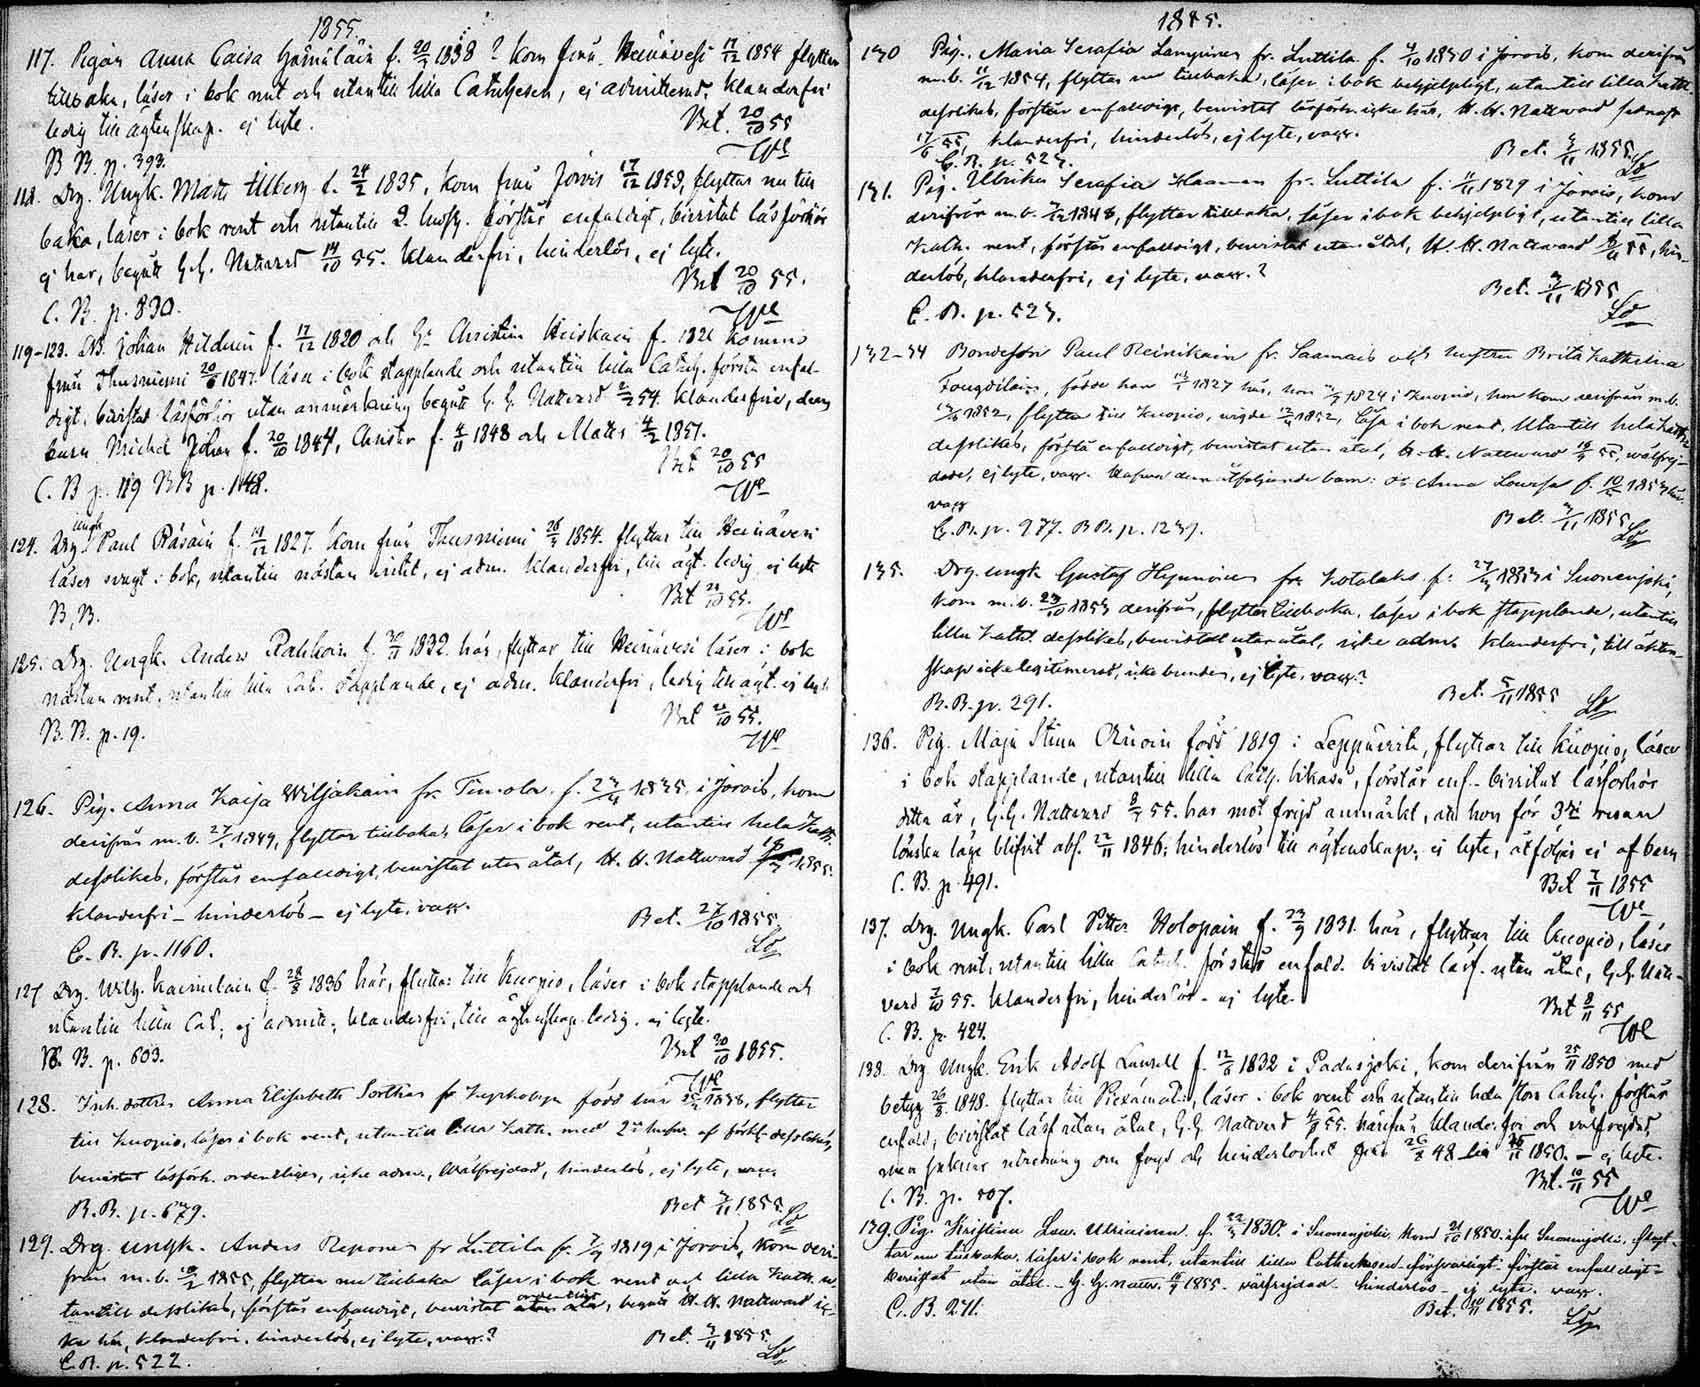 1855.
117. Pigan Anna Caisa Hämäläin f. 20/2 1838 ? kom från Heinävesi 17/12 1854 flyttar
tillbaka, läser i bok nut och utantill lilla Catechesen, ej admitterad, klanderfri
ledig till ägtenskap. ej lyte.
Bet. 20/10 55
B B. p. 393.
118. Drg. Ungk. Matts Ullberg f. 24/2 1835, kom från Jorois 17/12 1853, flyttar nu till
baka, läser i bok rent och utantill 2. hufst. förstår enfaldigt, bivistat läsförhör
ej har, begått H.H. Nattvard 14/10 55. klanderfri, hinderlös, ej lyte.
Bet 20/10 55.
C. B. p. 830.
119-123. Johan Hildén f. 17/12 1820 och Christina Heiskain f. 1821 komna
från Thusniemi 20/6 1847 läsa i bok stapplande och utantill lilla Catech. förstå enfal-
digt, bivistat läsförhör utan anmärkning begått H. H. Nattvard 54. klanderfria, deras
barn Michel Johan f. 20/10 1844, Christer f. 4/11 1848 och Matts 4/2 1851.
Bet 20/10 55
C. B p. 119 BB p. 1148.
124. Drg ungk Paul Räsäin f. 19/12 1827. kom från Thusniemi 26/3 1854. flyttar till Heinävesi
läser svagt i bok, utantill nästan intet, ej adm. klanderfri, till ägt. ledig ej lyte
Bet 22/10 55.
B. B.
125. Drg. Ungk. Anders Pahkoin f. 30/11 1832. här, flyttar till Heinävesi läser i bok
nästan rent, utantill lilla Cat. stapplande, ej adm. klanderfri, ledig till ägt. ej lyte
Bet 22/10 55.
B. B. p. 19.
126. Pig. Anna Kaisa Wiljakain fr. Timola f. 23/4 1835 i Jorois, kom
derifrån m. b. 27/1 1849, flyttar tillbaka, läser i bok rent, utantill hela Kath.
desslikes, förstår enfaldigt, bevistat utan åtal, H. H. Nattward 1855.
klanderfri – hinderlös – ej lyte, vacc.
Bet. 27/10 1855
C. B. p. 1160.
127 Drg. Wilh. Kaimolain f. 28/8 1836 här, flyttar till Kuopio, läser i bok stapplande och
utantill lilla Cat; ej admitt; klanderfri, till ägtenskap ledig. ej lyte.
Bet 30/10 1855.
B. B. p. 603.
128. Inh. dotter Anna Elisabeth Sorthan född här 1838, flyttar
till Kuopio, läser i bok rent, utantill lilla Kath. med 2ne hufst. af förkl. desslikes,
bevistat läsförh. ordentligen, icke adm., Wälfrejdad, hinderlös, ej lyte, vacc.
Bet 3/11 1855.
B. B. p. 679.
129. Drg. ungk. Anders Reponen fr Luttila f. 7/9 1819 i Jorois, kom deri-
från m. b. 18/2 1855, flyttar nu tillbaka läser i bok rent och lilla Kath. u-
tantill desslikes, förstår enfaldigt, bevistat ordentligt, begått H. H. Nattward ic-
ke här, klanderfri, hinderlös, ej lyte, vacc.?
Bet 3/11 1855.
C. B. p. 522.
1855.
130 Pig. Maria Serafia Lampinen fr. Luttila f. 4/10 1830 i Jorois, kom derifrån
m. b. 11/12 1854, flyttar nu tillbaka, läser i bok behjelpligt, utantill lilla Kath.
desslikes, förstår enfaldigt, bevistat läsförh. icke här, H. H. Nattward sednast
17/6 55, klanderfri, hinderlös, ej lyte, vacc.
Bet. 3/11 1855.
C. B. p. 523.
131. Pig. Ulrika Serafia Haanen fr. Luttila f. 11/11 1829 i Jorois, kom
derifrån m. b. 1848, flyttar tillbaka, läser i bok behjelpligt, utantill lilla
Kath. rent, förstår enfaldigt, bevistat utan åtal, H. H. Nattward 55, hin-
derlös, klanderfri, ej lyte, vacc.?
Bet. 3/11 1855
C. B. p. 523.
132-34 Bondeson Paul Reinikain fr. Saamais och hustru Brita Katharina
födde han 1827 här, hon 1824 i Kuopio, hon kom derifrån m. b.
1852, flyttar till Kuopio, wigde 1852, läsa i bok rent, Utantill hela Kath.
desslikes, förstå enfaldigt, bevistat utan åtal, H. H. Nattward 16/9 55, wälfrej-
dade, ej lyte, vacc. åtföljande barn: Anna Lowisa f. 10/5 1853 här.
vacc
Bet. 3/11 1855
C. B. p. 977. BB. p. 1237.
135. Drg. ungk Gustaf Hynninen fr. Kotalaks f. 27/4 1833 i Suonenjoki,
kom m. b. 23/10 1853 derifrån, flyttar tillbaka, läser i bok stapplande, utantill
lilla Kath. desslikes, bevistat utan åtal, icke adm. klanderfri, till äkten-
skap icke legitimerad, icke bunden, ej lyte, vacc.?
Bet. 5/11 1855
B. B. p. 291.
136. Pig. Maja Stina född 1819 i Leppävirta, flyttar till Kuopio, läser
i bok stapplande, utantill lilla Cath. likaså, förstår enf. bivistat läsförhör
detta år, H.H. Nattvard 9/9 55. har mot frejd anmärkt, att hon för 3dje resan
lönska läge blifvit abs. 22/11 1846; hinderlös till ägtenskap; ej lyte, åtföljes ej af barn
Bet 7/11 1855
C. B. p. 491.
137. Drg. Ungk. Carl Petter Holopain f. 23/9 1831. här, flyttar till Kuopio, läser
i bok rent, utantill lilla Catech. förstår enfald. bivistat läsf. utan åtal, H.H. Natt-
vard 7/10 55. klanderfri, hinderlös – ej lyte.
Bet 8/11 55
C. B. p. 424.
138. Drg Ungk. Erik Adolf Laurell f. 12/6 1832 i Padasjoki, kom derifrån 25/11 1850 med
betyg 26/8 1848. flyttar till Pieksämäki, läser i bok rent och utantill hela stora Catech. förstår
enfald; bivistat läsf utan åtal, H.H. Nattvard 4/9 55. härifrån klanderfri och välfrejdad,
men saknar utredning om frejd och hinderlöshet från 26/8 48 till 25/11 1850. – ej lyte.
Bet. 10/11 55
C. B. p. 507.
139. Pig. Kristina Low. f. 22/3 1830. i Suonenjoki. kom 21/10 1850 ifr Suonenjoki, flyt-
tar nu tillbaka, läser i bok rent, utantill lilla Cathekesen försvarligt: förstår enfaldigt –
bevistat utan åtal. – H. H. Nattv. 16/9 1855. wälfrejdad – hinderlös – ej lyte. vacc.
Bet. 10/11 1855.
C. B. 271.